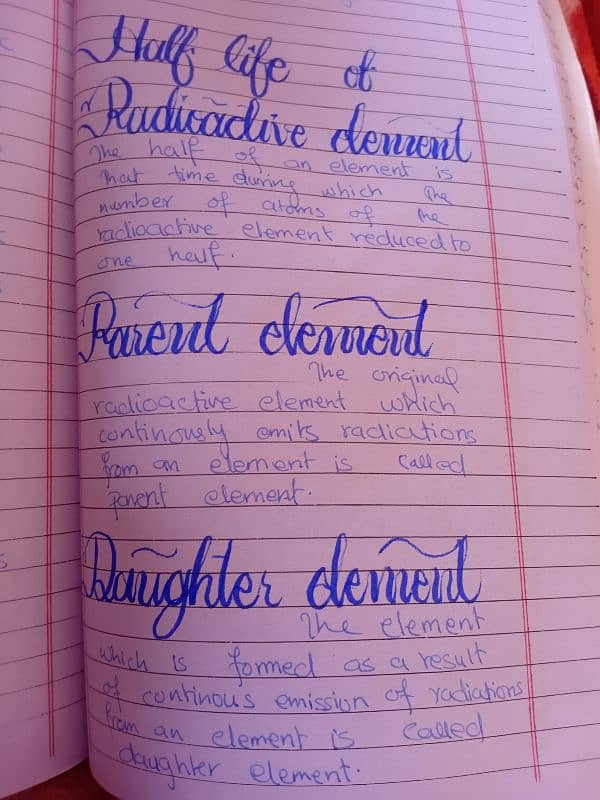 Half life of
Radioactive element
The half of an element is
that time during which the
number of atoms of the
radioactive element reduced to
one half.
Parent element
The original
radioactive element which
continously emits radiations
from an element is called
parent element.
Daughter element
The element
which is formed as a result
of continous emission of radiations
from an element is called
daughter element.